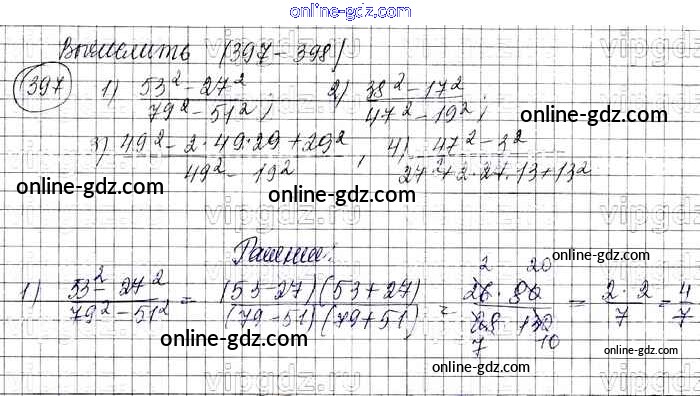 online-gdz.com
Вычислить (397-398)
397 1) 53² - 27² / 79² - 51² ; 2) 38² - 17² / 47² - 19² ;
online-gdz.com
3) 49² - 2·49·29 + 29² / 49² - 19² , 4) 47² - 3² / 27² + 2·27·13 + 13²
online-gdz.com online-gdz.com online-gdz.com
vipgdz.ru
Решение:
online-gdz.com
1) 53² - 27² / 79² - 51² = (53-27)(53+27) / (79-51)(79+51) = 26·80 / 28·130 = 2·2 / 7 = 4/7
online-gdz.com online-gdz.com
online-gdz.com
vipgdz.ru